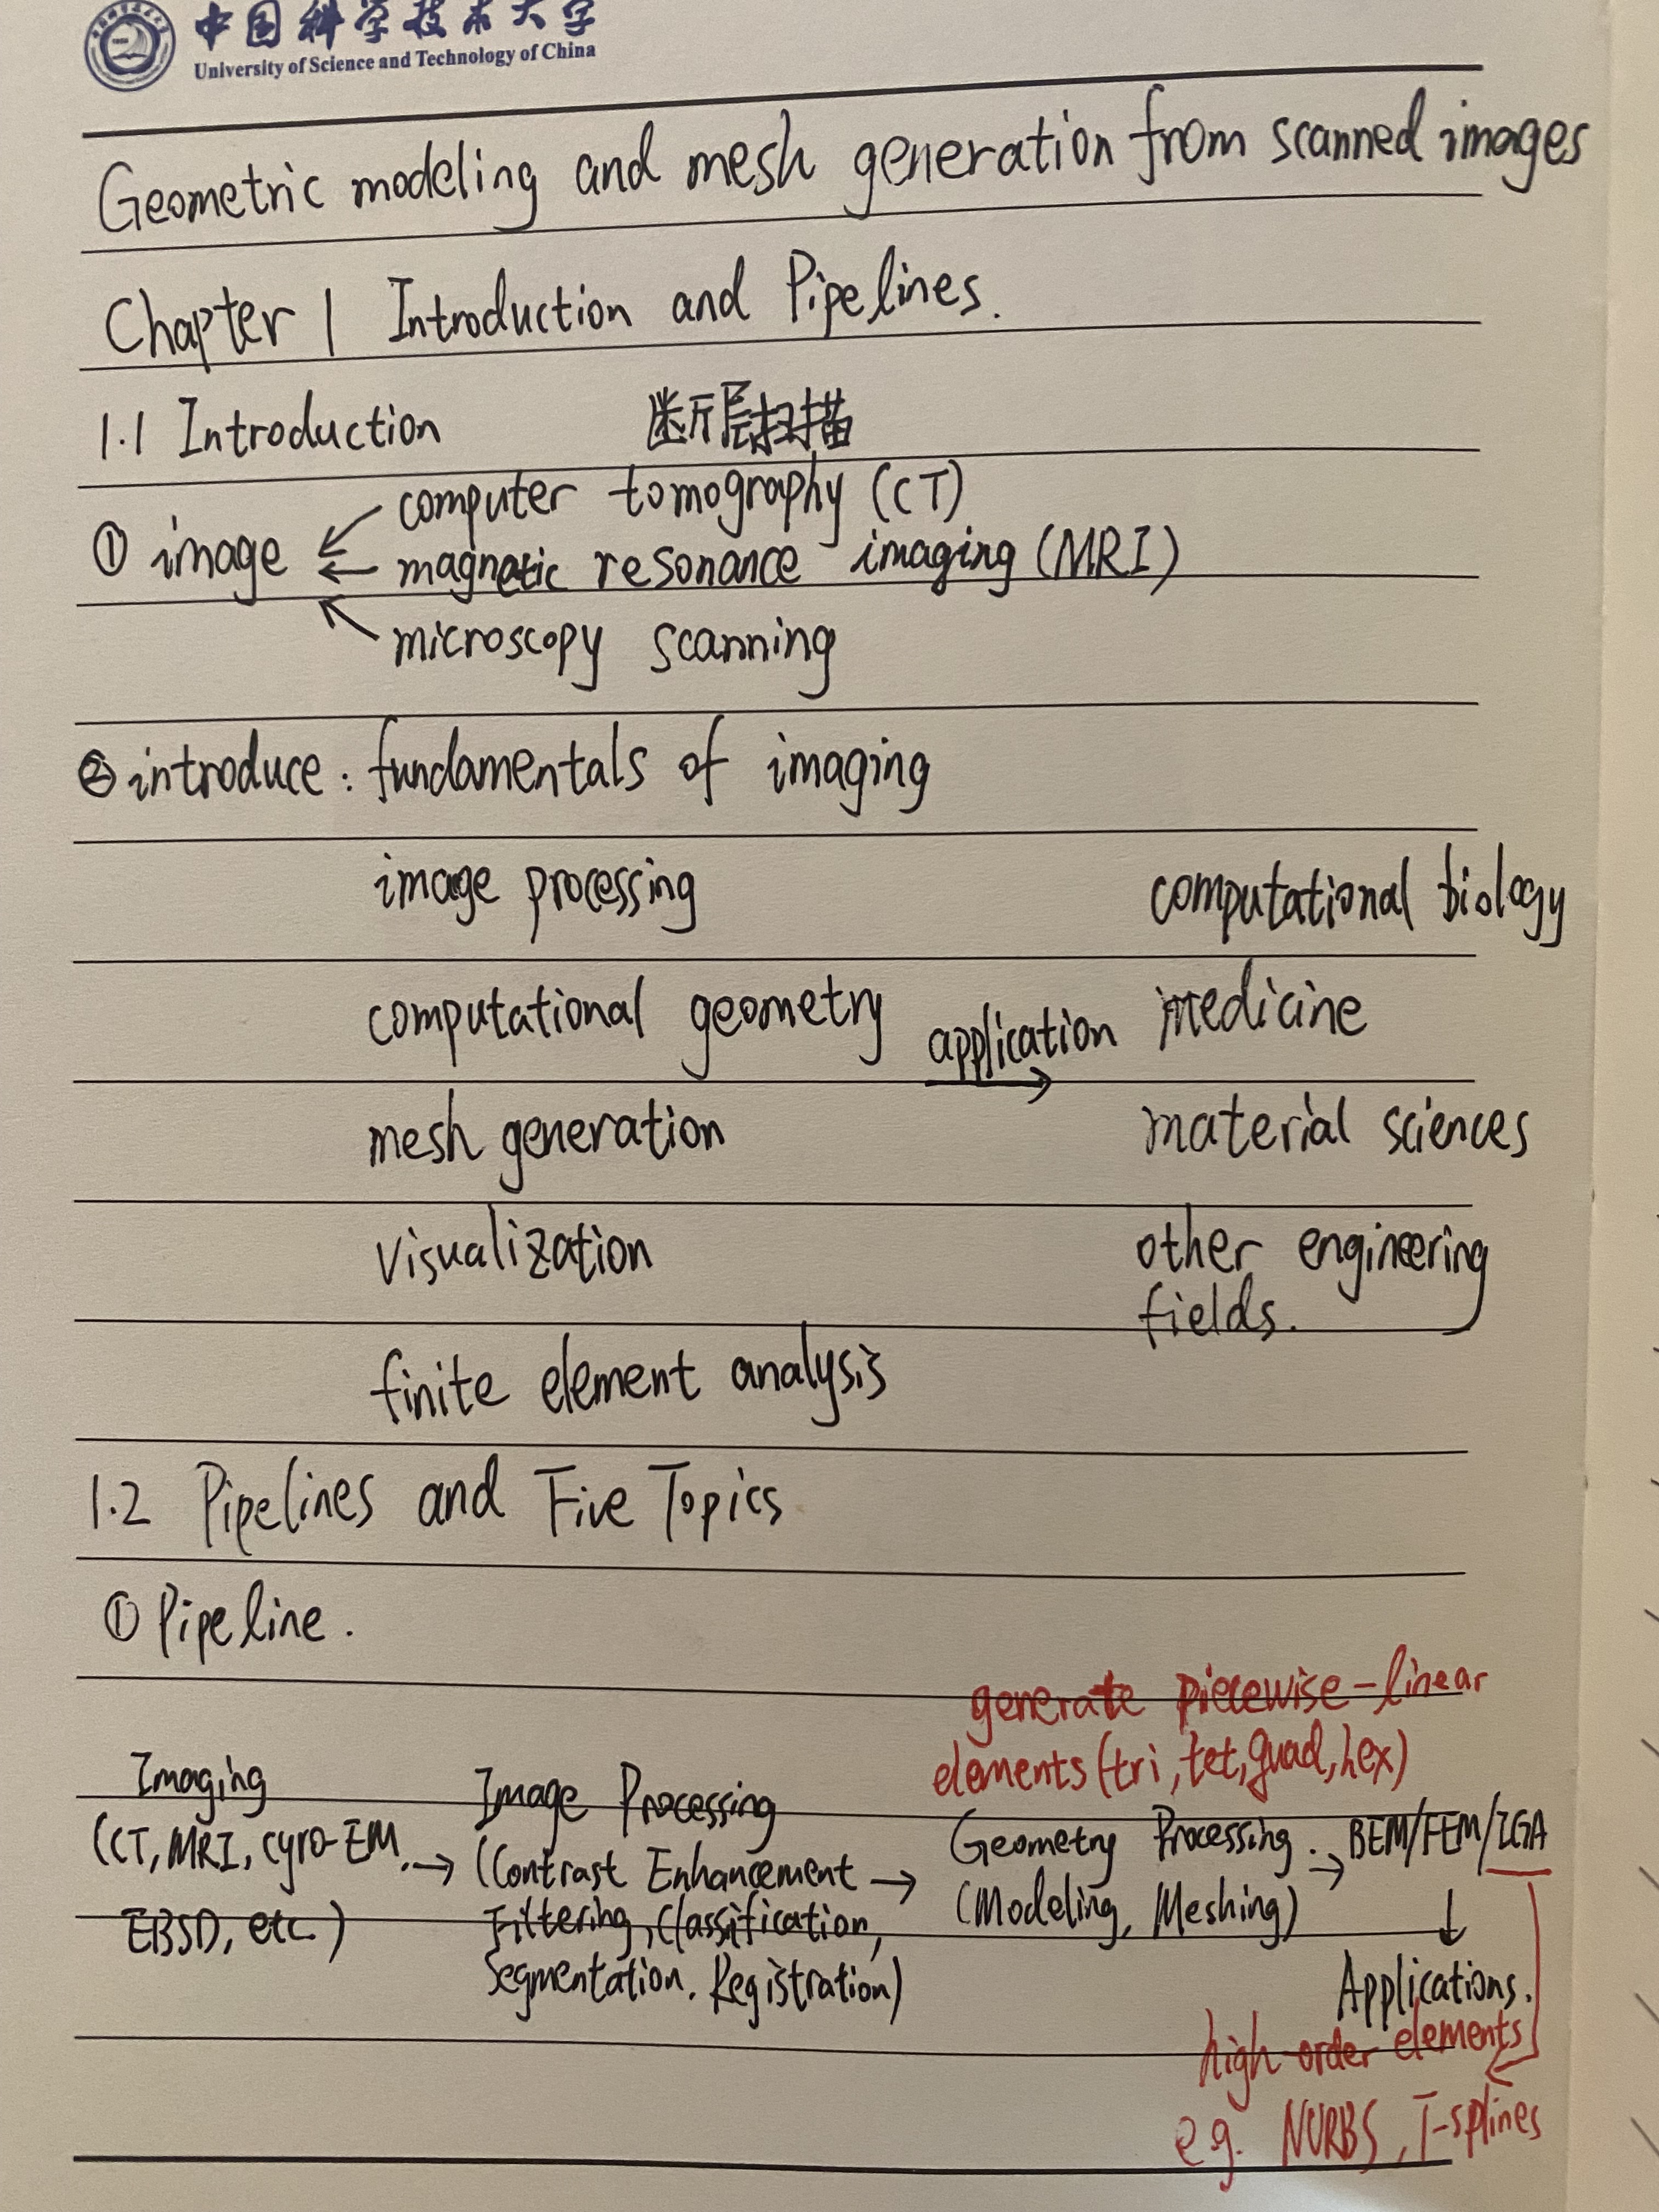 中国科学技术大学
University of Science and Technology of China
Geometric modeling and mesh generation from scanned images
Chapter 1 Introduction and Pipelines.
1.1 Introduction 断层扫描
① image ← computer tomography (CT)
← magnetic resonance imaging (MRI)
← microscopy scanning
② introduce: fundamentals of imaging
image processing
computational biology
computational geometry
application →
medicine
mesh generation
material sciences
visualization
other engineering
fields.
finite element analysis
1.2 Pipelines and Five Topics
① Pipeline.
generate piecewise-linear
elements (tri, tet, quad, hex)
Imaging
(CT, MRI, cyro-EM,
EBSD, etc.)
→
Image Processing
(Contrast Enhancement
Filtering, Classification,
Segmentation, Registration)
→
Geometry Processing.
(Modeling, Meshing)
→
BEM/FEM/IGA
↓
Applications.
high-order elements
e.g. NURBS, T-splines